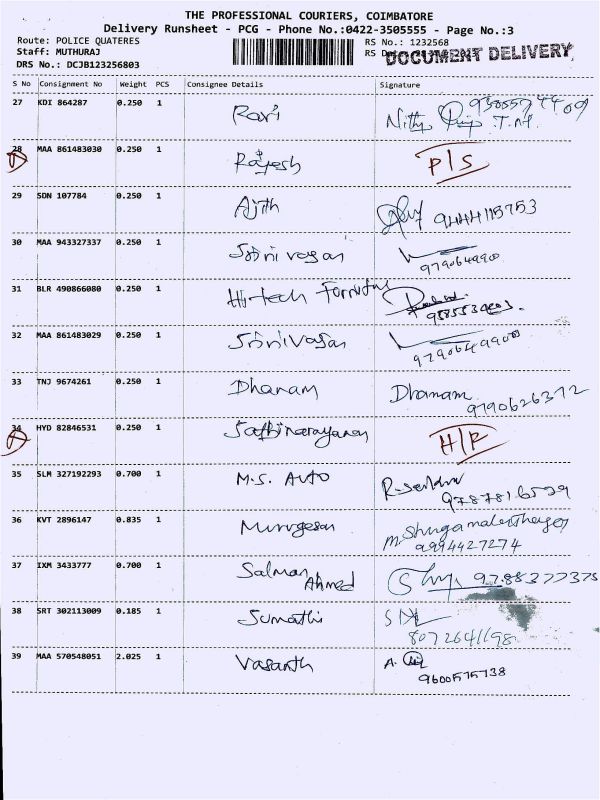 THE PROFESSIONAL COURIERS, COIMBATORE
Delivery Runsheet - PCG - Phone No.:0422-3505555 - Page No.:3
Route: POLICE QUATERES
RS No.: 1232568
Staff: MUTHURAJ
RS
DOCUMENT DELIVERY
DRS No.: DCJB123256803
S No Consignment No Weight PCS Consignee Details Signature
27 KDI 864287 0.250 1 Ravi
28 MAA 861483030 0.250 1 Rajesh P/S
29 SDN 107784 0.250 1 Ajith 9444115753
30 MAA 943327337 0.250 1 Srinivasan
31 BLR 490866080 0.250 1 Hi-tech
32 MAA 861483029 0.250 1 Srinivasan
33 TNJ 9674261 0.250 1 Dhanam Dhanam 9790626372
34 HYD 82846531 0.250 1
35 SLM 327192293 0.700 1 M.S. AUTO
36 KVT 2896147 0.835 1 Murugesan 9994427274
37 IXM 3433777 0.700 1 Salman Ahmed
38 SRT 302113009 0.185 1 Sumathi 8072641198
39 MAA 570548051 2.025 1 Vasanth